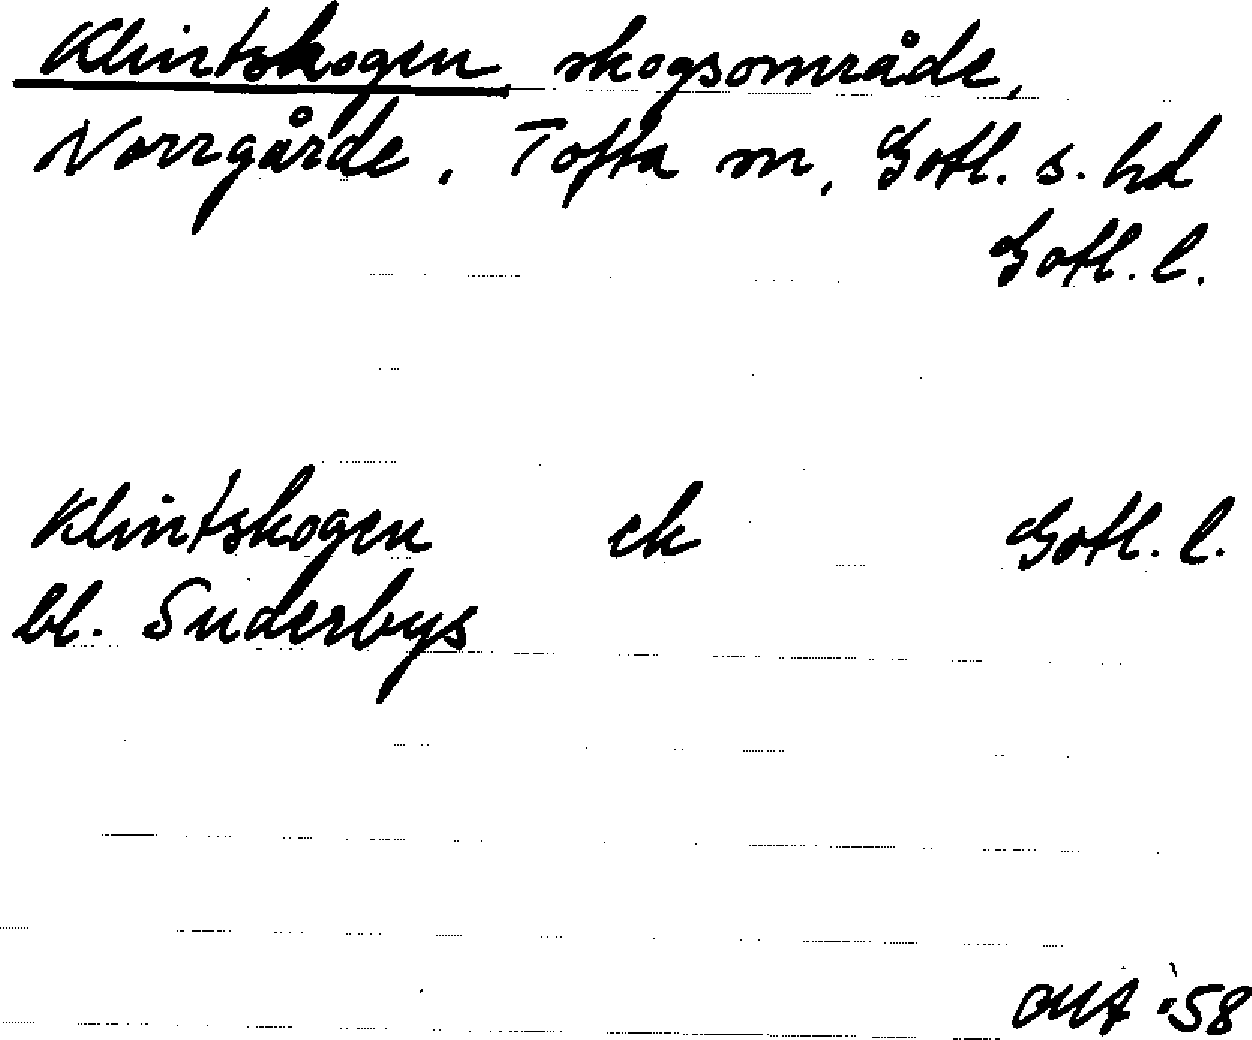 Klintskogen skogsområde,
Norrgårde, Tofta sn, Gotl. s. hd
Gotl. l.
Klintskogen ek Gotl. l.
bl. Suderbys
'58